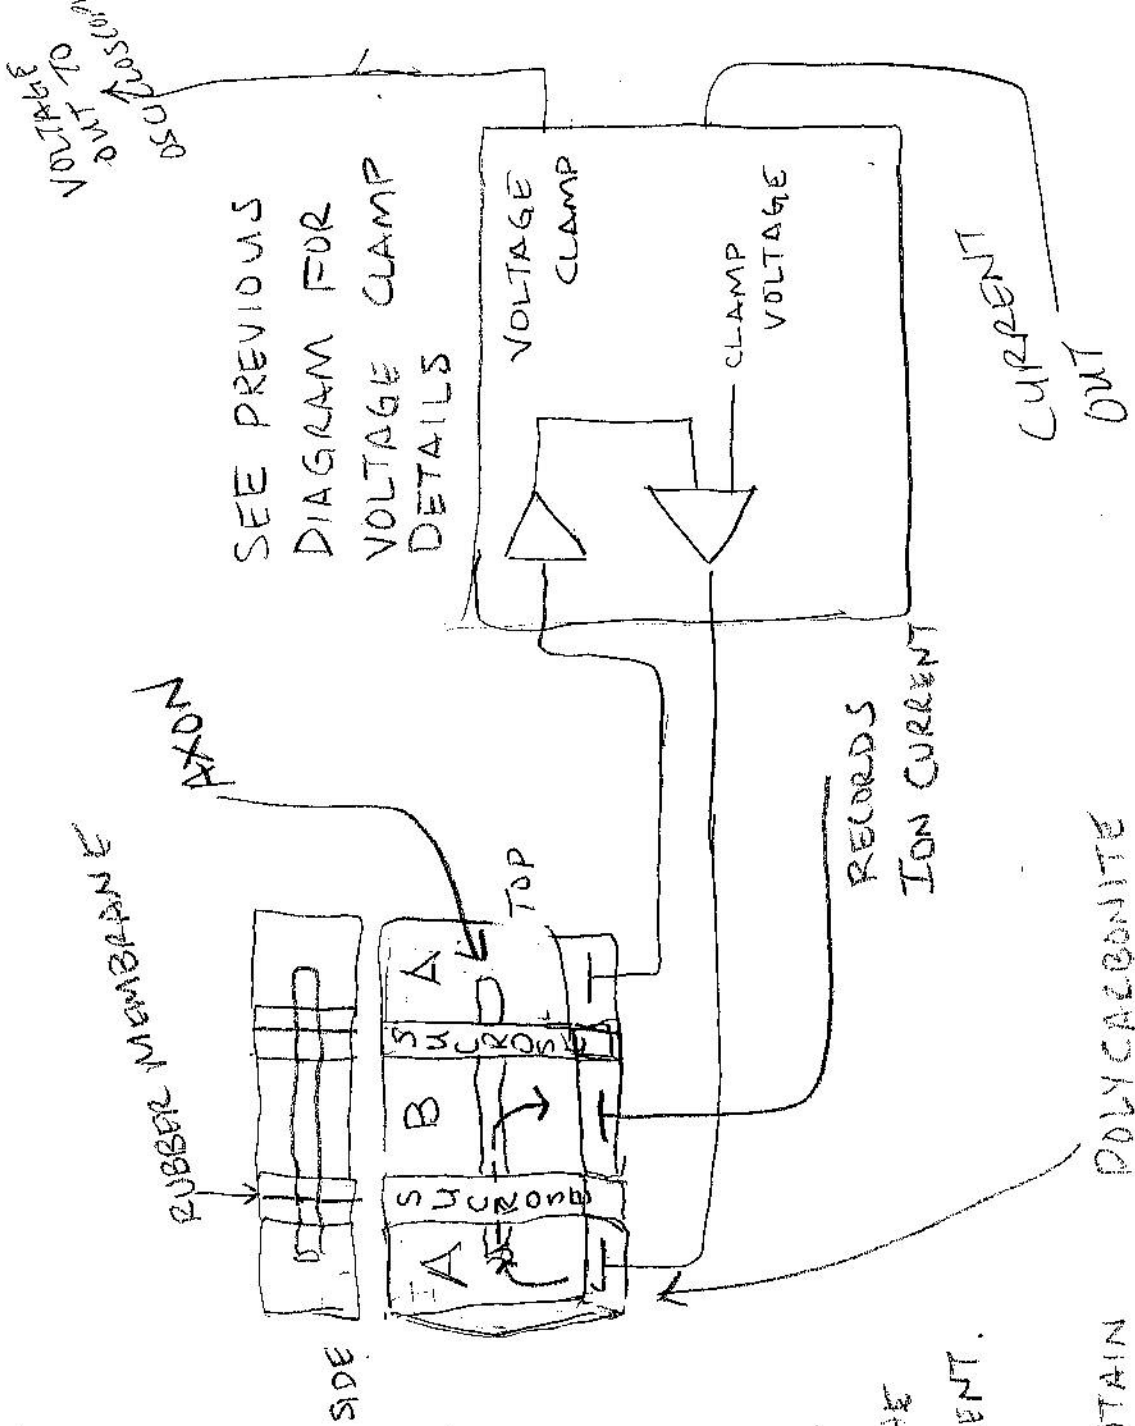 VOLTAGE
OUT TO
SEE PREVIOUS
DIAGRAM FOR
VOLTAGE CLAMP
DETAILS
VOLTAGE
CLAMP
CLAMP
VOLTAGE
CURRENT
OUT
AXON
RUBBER MEMBRANE
SIDE
TOP
A
SUCROSE
B
SUCROSE
A
RECORDS
ION CURRENT
POLYCARBONITE
ENT.
TAIN